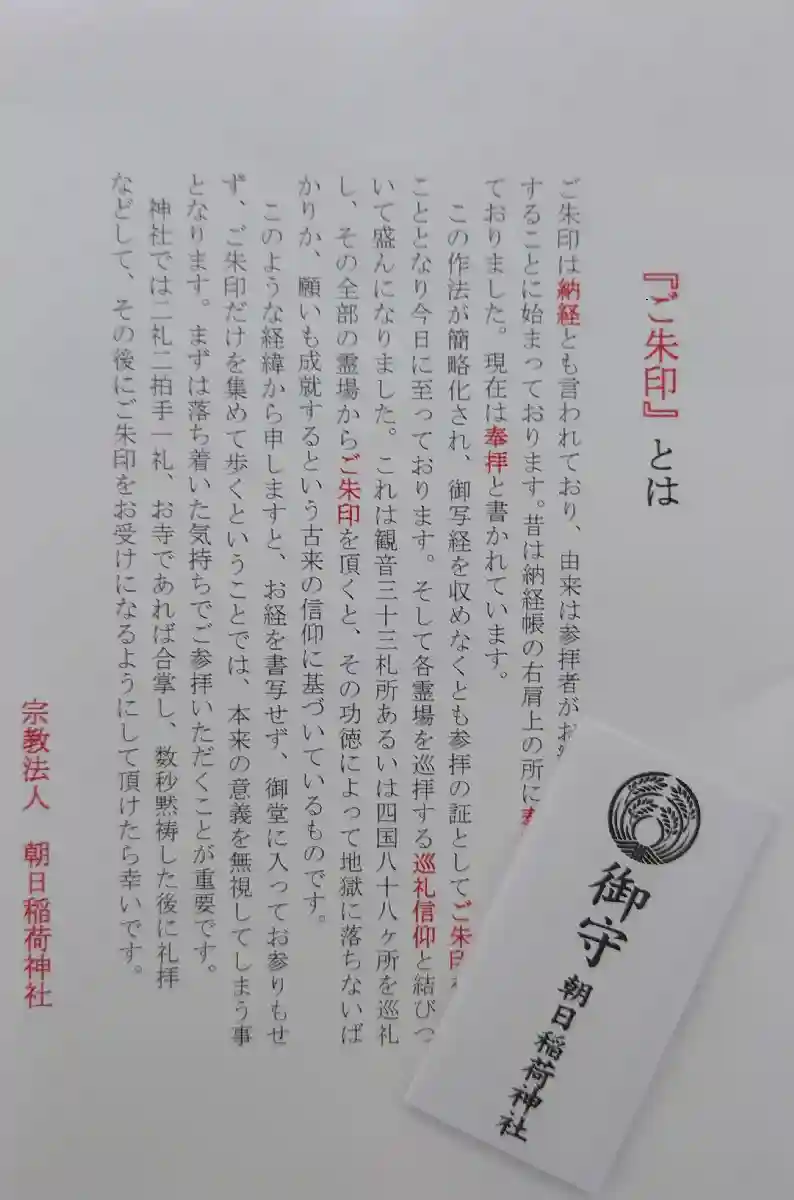 『ご朱印』とは
ご朱印は納経とも言われており、由来は参拝者がお
することに始まっております。昔は納経帳の右肩上の所に
ておりました。現在は奉拝と書かれています。
この作法が簡略化され、御写経を収めなくとも参拝の証としてご朱印
こととなり今日に至っております。そして各霊場を巡拝する巡礼信仰と結びつ
いて盛んになりました。これは観音三十三札所あるいは四国八十八ヶ所を巡礼
し、その全部の霊場からご朱印を頂くと、その功徳によって地獄に落ちないば
かりか、願いも成就するという古来の信仰に基づいているものです。
このような経緯から申しますと、お経を書写せず、御堂に入ってお参りもせ
ず、ご朱印だけを集めて歩くということでは、本来の意義を無視してしまう事
となります。まずは落ち着いた気持ちでご参拝いただくことが重要です。
神社では二礼二拍手一礼、お寺であれば合掌し、数秒黙祷した後に礼拝
などして、その後にご朱印をお受けになるようにして頂けたら幸いです。
宗教法人 朝日稲荷神社
御守
朝日稲荷神社